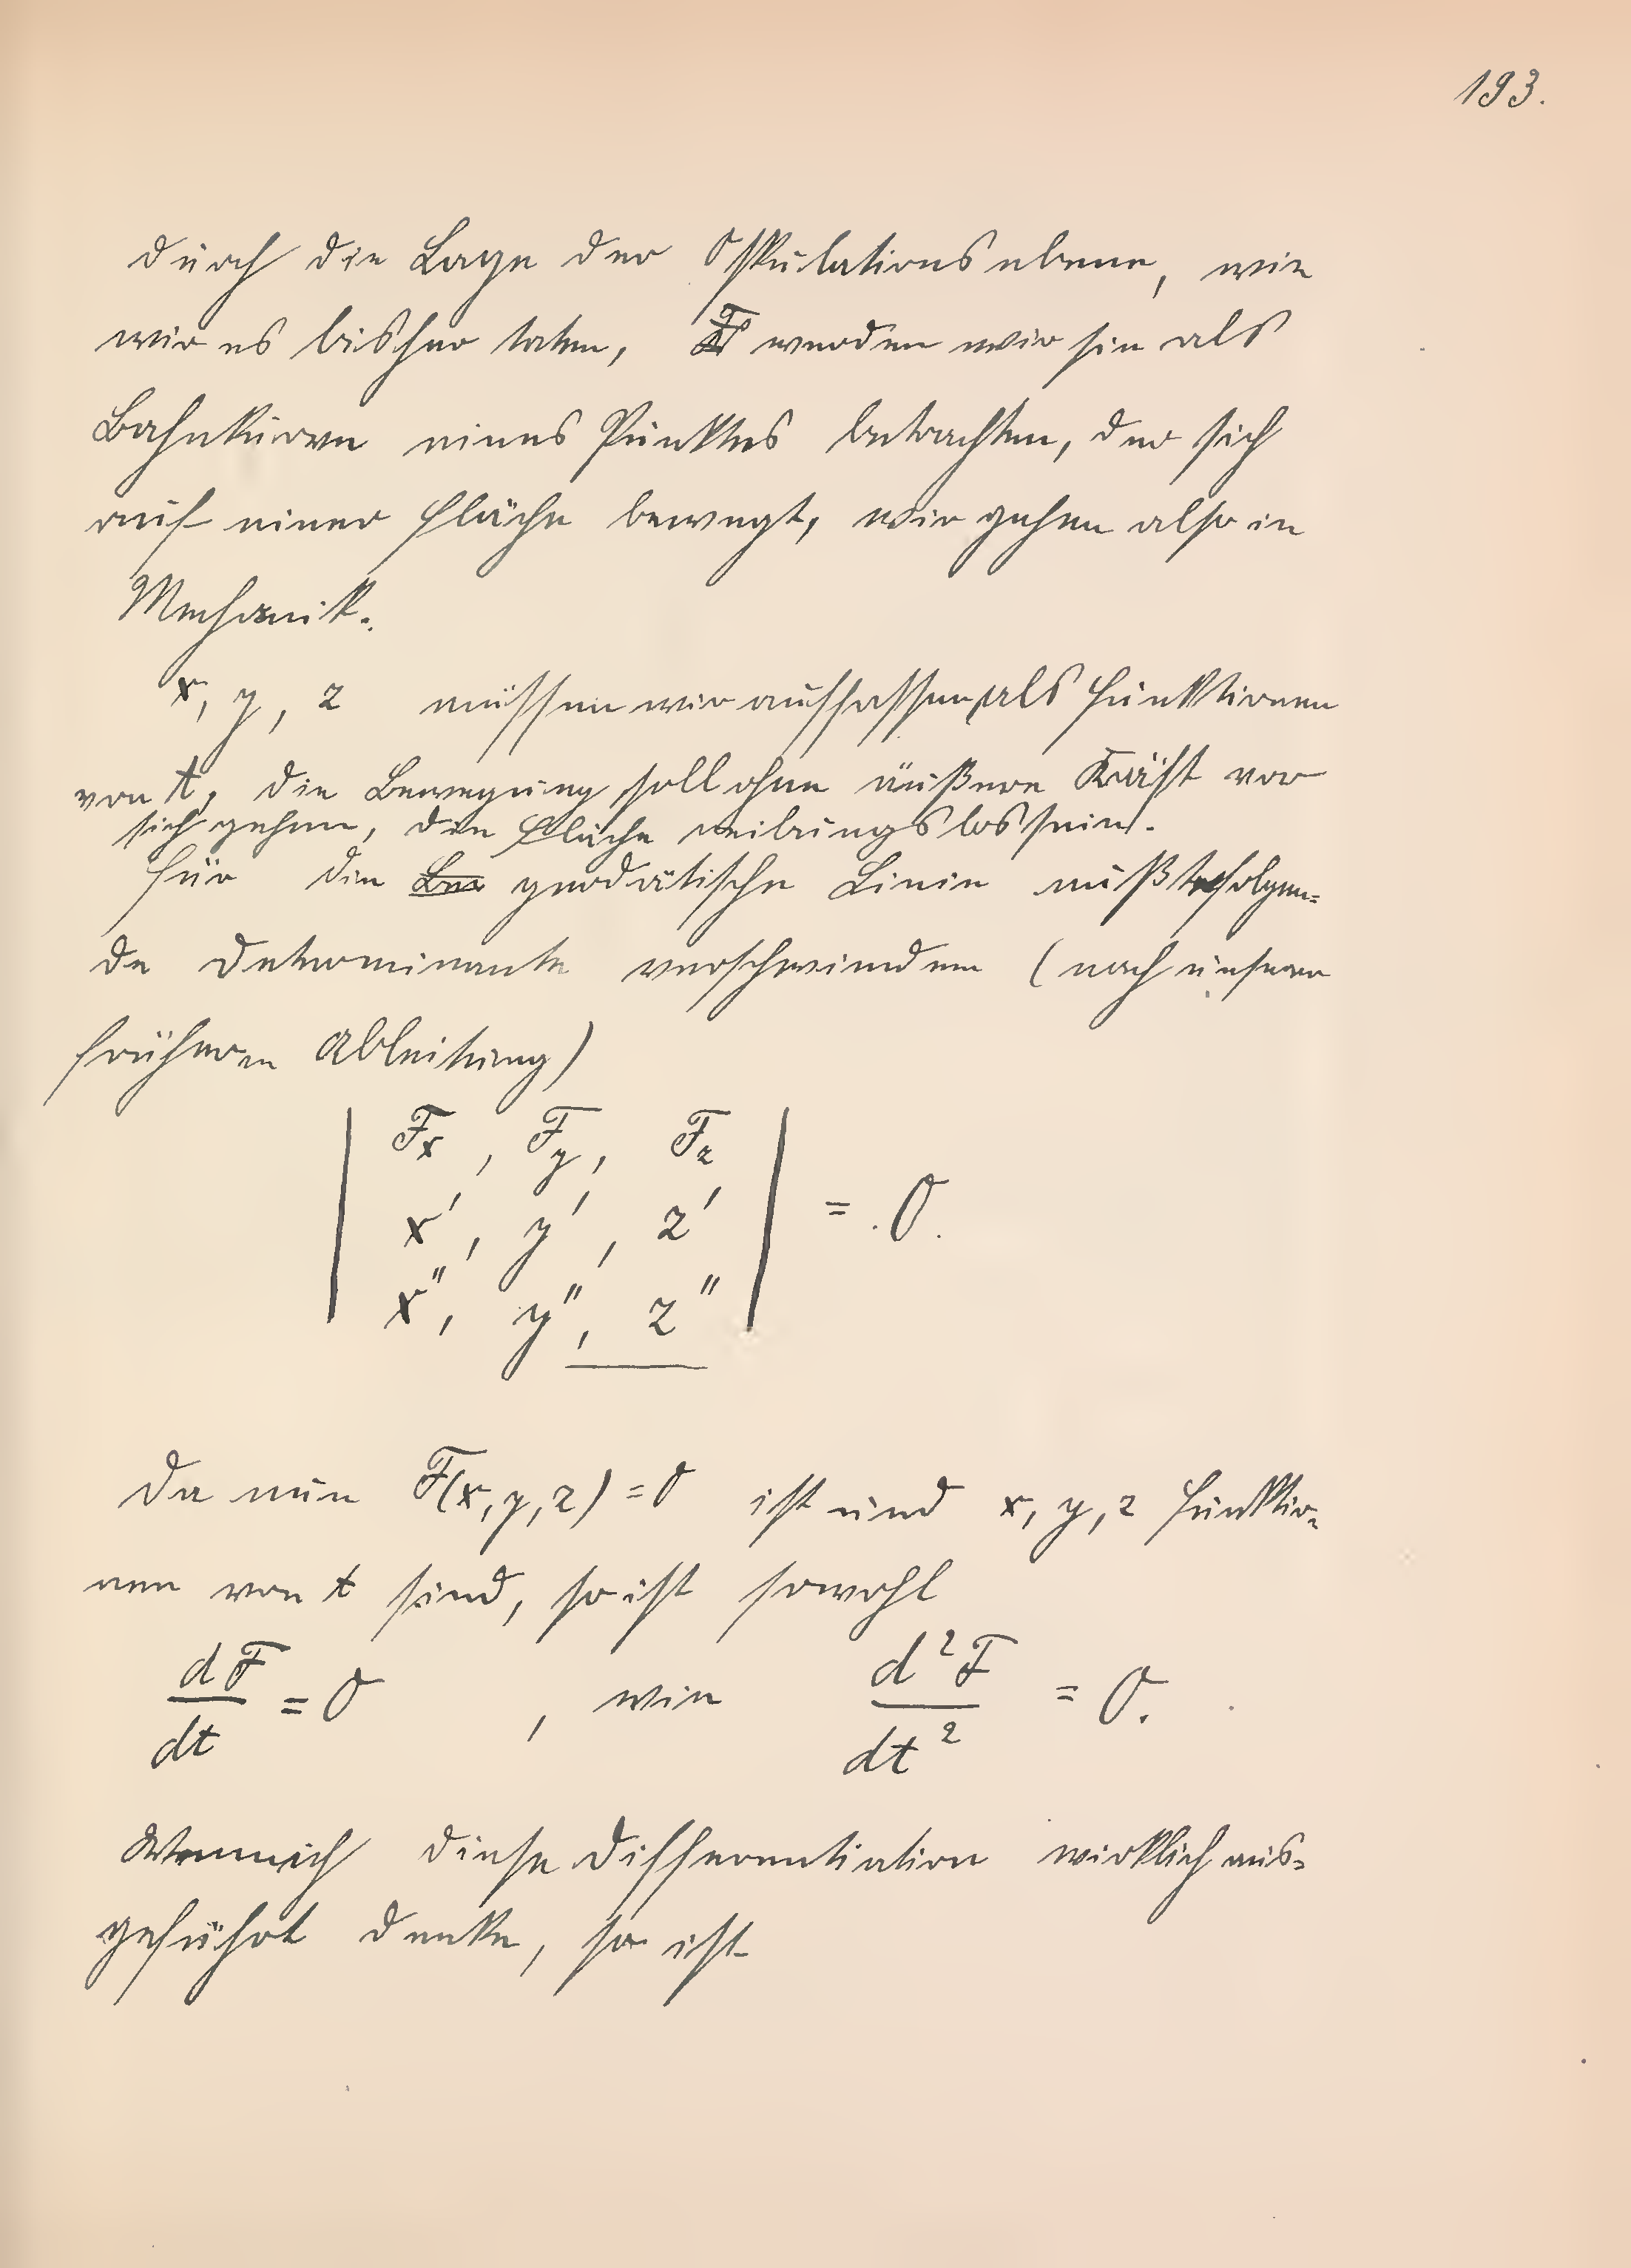 193.
durch die Lage der Oskulationsebene, wie
wir es bisher taten, werden wir sie als
Bahnkurve eines Punktes betrachten, der sich
auf einer Fläche bewegt, wir gehen also in
Mechanik.
x, y, z müssen wir auffassen als Funktionen
von t, die Bewegung soll ohne äußere Kraft vor
sich gehen, die Fläche reibungslos sein.
Für die geodätische Linie mußte folgen-
de Determinante verschwinden (nach unserer
früheren Ableitung)
| F_x, F_y, F_z |
| x', y', z' | = 0.
| x'', y'', z'' |
Da nun F(x, y, z) = 0 ist und x, y, z Funktio-
nen von t sind, so ist sowohl
dF/dt = 0, wie d²F/dt² = 0.
Wenn ich diese Differentiation wirklich aus-
geführt denke, so ist